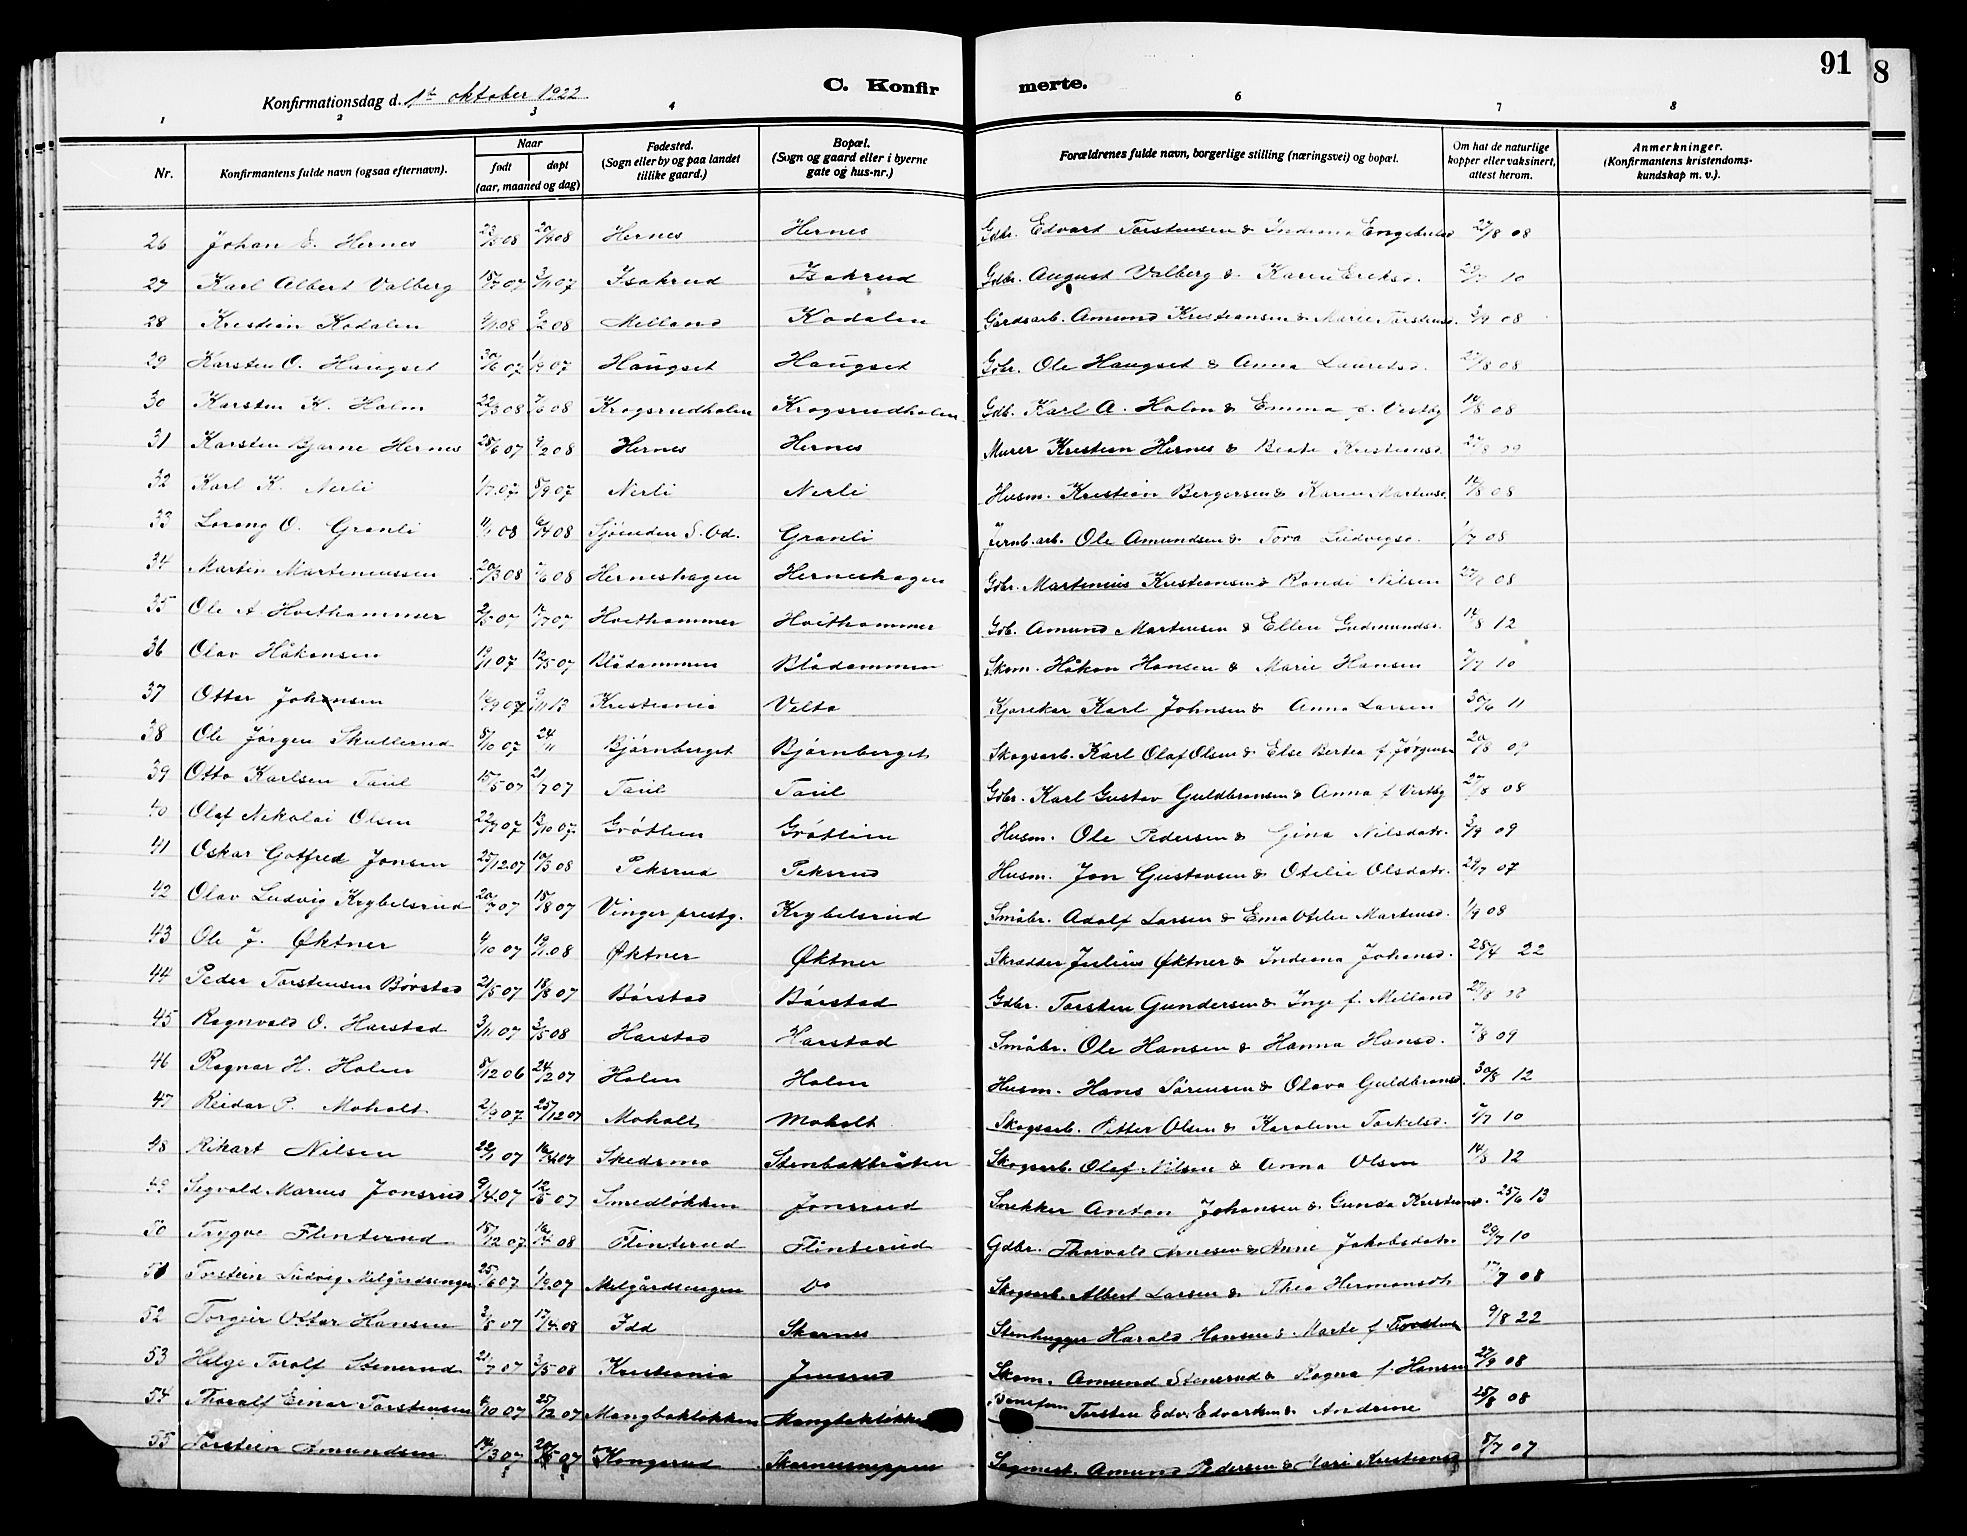 91
8
Konfirmationsdag d. 1st oktober 1922
C. Konfir merte.
1 2 3 4 6 7 8
Nr. Konfirmantens fulde navn (ogsaa efternavn). Naar født døpt (aar, maaned og dag) Fødested. (Sogn eller by og paa landet tillike gaard.) Bopæl. (Sogn og gaard eller i byerne gate og hus-nr.) Forældrenes fulde navn, borgerlige stilling (næringsvei) og bopæl. Om hat de naturlige kopper eller vaksinert, attest herom. Anmerkninger. (Konfirmantens kristendoms-kundskap m. v.).
26 Johan E. Hernes 23/3 08 20/4 08 Hernes Hernes Gdbr. Edvart Torstensen & Indiana Engebretsd 27/8 08
27 Karl Albert Valberg 15/7 07 3/11 07 Isakrud Isakrud Gdbr. August Valberg & Karen Eriksd. 29/7 10
28 Kristian Kodalen 9/1 08 9/2 08 Melland Kodalen Gårdsarb. Amund Kristiansen & Marie Torstensd. 2/9 08
29 Karsten O. Haugset 30/6 07 1/9 07 Haugset Haugset Gdbr. Ole Haugset & Anna Lauretsd. 27/8 08
30 Karsten K. Holm 22/3 08 7/6 08 Krogsrudholen Krogsrudholen Gdb. Karl A. Holm & Emma f. Vestby 14/8 08
31 Karsten Bjarne Hernes 25/6 07 9/2 08 Hernes Hernes Murer Kristian Hernes & Beate Kristiansd. 27/8 09
32 Karl K. Nerli 1/7 07 8/9 07 Nerli Nerli Husm. Kristian Bergersen & Karen Martinsd. 14/8 08
33 Lorang O. Granli 11/1 08 6/4 08 Sjøenden S. Od. Granli Jernb. arb. Ole Amundsen & Tora Ludvigsd. 1/7 08
34 Martin Martiniussen 20/3 08 7/6 08 Herneshagen Herneshagen Gdbr. Martinius Kristiansen & Randi Nilsen 27/8 08
35 Ole A Hvithammer 2/5 07 14/7 07 Hvithammer Hvithammer Gdb. Amund Martinsen & Ellen Gudmundsd. 14/8 12
36 Olav Håkonsen 19/1 07 12/5 07 Blådammen Blådammen Skom. Håkon Hansen & Marie Hansen 7/7 10
37 Ottar Johnsen 14/9 07 9/11 13 Kristiania Velta Kjørekar Karl Johnsen & Anna Larsen 30/6 11
38 Ole Jørgen Skullerud 8/10 07 24/11 Bjørnberget Bjørnberget Skogsarb. Karl Olaf Olsen & Else Bertea f. Jørgensen 20/8 09
39 Otto Karlsen Taul 15/5 07 21/7 07 Taul Taul Gdbr. Karl Gustav Guldbransen & Anna f Vestby 27/8 08
40 Olaf Nikolai Olsen 22/7 07 13/10 07 Grøtlien Grøtlien Husm. Ole Pedersen & Gina Nilsdatr. 3/9 09
41 Oskar Gotfred Jonsen 25/12 07 10/3 08 Peksrud Peksrud Husm. Jon Gustavsen & Otilie Olsdatr. 29/7 07
42 Olav Ludvig Krybelsrud 20/7 07 18/8 07 Vinger prestg. Krybelsrud Småbr. Adolf Larsen & Ema Otilie Martinsd. 1/9 08
43 Ole J. Øktner 4/10 07 19/1 08 Øktner Øktner Skrædder Julius Øktner & Indiana Johansd. 25/4 22
44 Peder Torstensen Børstad 21/5 07 18/8 07 Børstad Børstad Gdbr. Torsten Gundersen & Inge f. Melland 27/8 08
45 Ragnvald O. Harstad 3/11 07 3/5 08 Harstad Harstad Småbr. Ole Hansen & Hanna Hansd. 7/8 09
46 Ragnar H. Holen 8/12 06 24/2 07 Holen Holen Husm. Hans Sørensen & Olava Guldbransd. 30/8 12
47 Reidar P. Moholt 2/9 07 25/12 07 Moholt Moholt Skogsarb. Petter Olsen & Karoline Torkelsd. 7/7 10
48 Rikart Nilsen 22/1 07 14/4 07 Skedsmo Stenbaktråten Skogsarb. Olaf Nilsen & Anna Olsen 14/8 12
49 Sigvald Marius Jonsrud 9/4 07 12/5 07 Smedløkken Jonsrud Snekker Anton Johansen & Gunda Kristiansd. 25/6 13
50 Trygve Flinterud 18/12 07 Flinterud Flinterud Gdbr. Thorvald Arnesen & Anne Jakobsdatr. 29/7 10
51 Torstein Ludvig Melgårdsengen 25/6 07 1/9 07 Melgårdsengen Do Skogsarb. Albert Larsen & Thea Hermansdtr 17/7 08
52 Torgeir Ottar Hansen 3/8 07 17/4 08 Idd Skarnes Stenhugger Harald Hansen & Marte f 9/8 22
53 Helge Toralf Stenerud 21/7 07 3/5 08 Kristiania Jensrud Skom. Amund Stenerud & Ragna f. Hansen 27/9 08
54 Thoralf Einar Torstensen 6/10 07 25/12 07 Mangbakløkken Mangbakløkken Torsten Edv. Edvartsen & Andrine 25/8 08
55 Torstein Amundsen 14/3 07 Kongsrud Skarnesmoppen Sagmest. Amund Pedersen & Mari Kristiansd 5/7 07